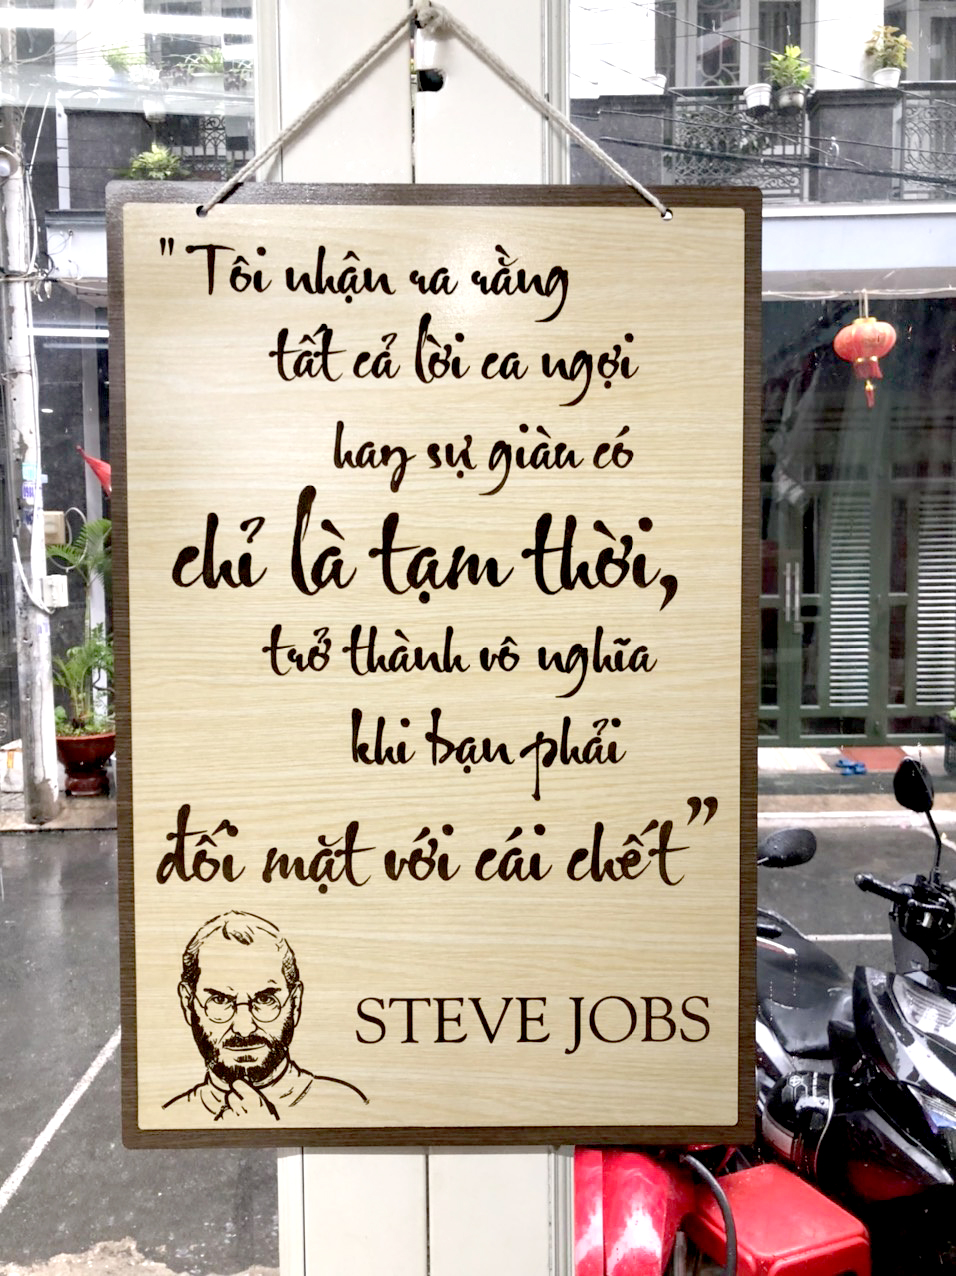 "Tôi nhận ra rằng
tất cả lời ca ngợi
hay sự giàu có
chỉ là tạm thời,
trở thành vô nghĩa
khi bạn phải
đối mặt với cái chết”
STEVE JOBS